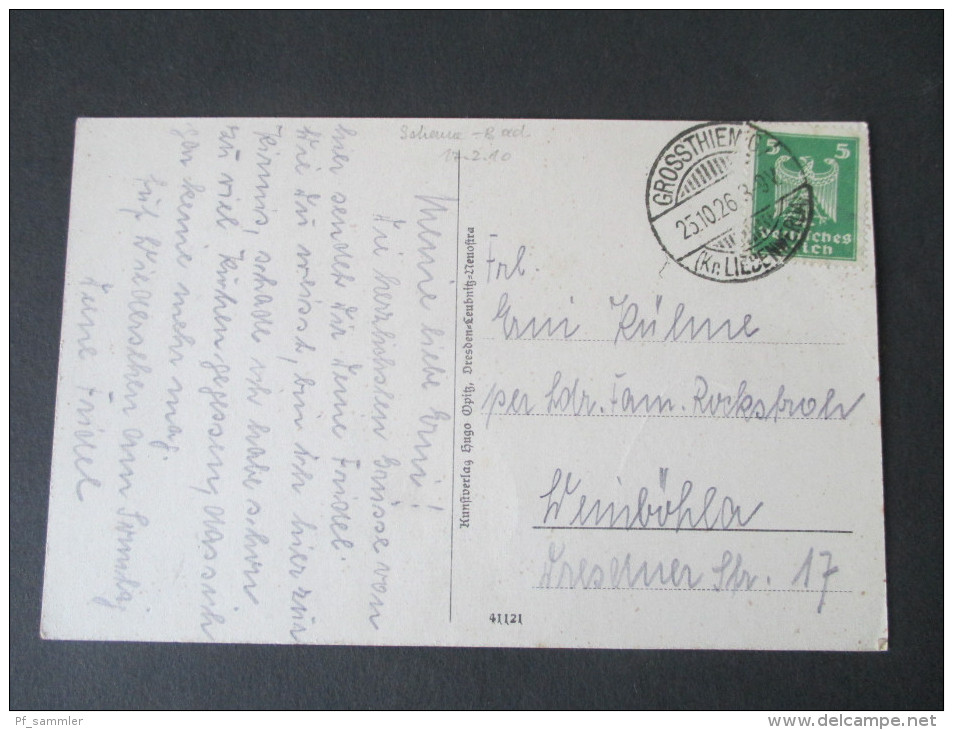 Schana - Bad
17.2.10
Meine liebe Erni!
Die herzlichsten Grüsse von
hier sendet Dir Deine Friedel.
Wie Du weisst, bin ich hier zur
Kirmis, schade ich habe schon
zu viel Kuchen gegessen, dass ich
gar keine mehr mag.
Auf Wiedersehen am Sonntag
Deine Friedel
Kunstverlag Hugo Opitz, Dresden-Leubnitz-Neuostra
41121
GROSSTHIEMIG
25.10.26. 3-9V.
(Kr. LIEBENWERDA)
5 5
Deutsches
Reich
Frl.
Erni Kühne
per Adr. Fam. Rockstroh
Weinböhla
Dresdner Str. 17
Pf_sammler
www.delcampe.net